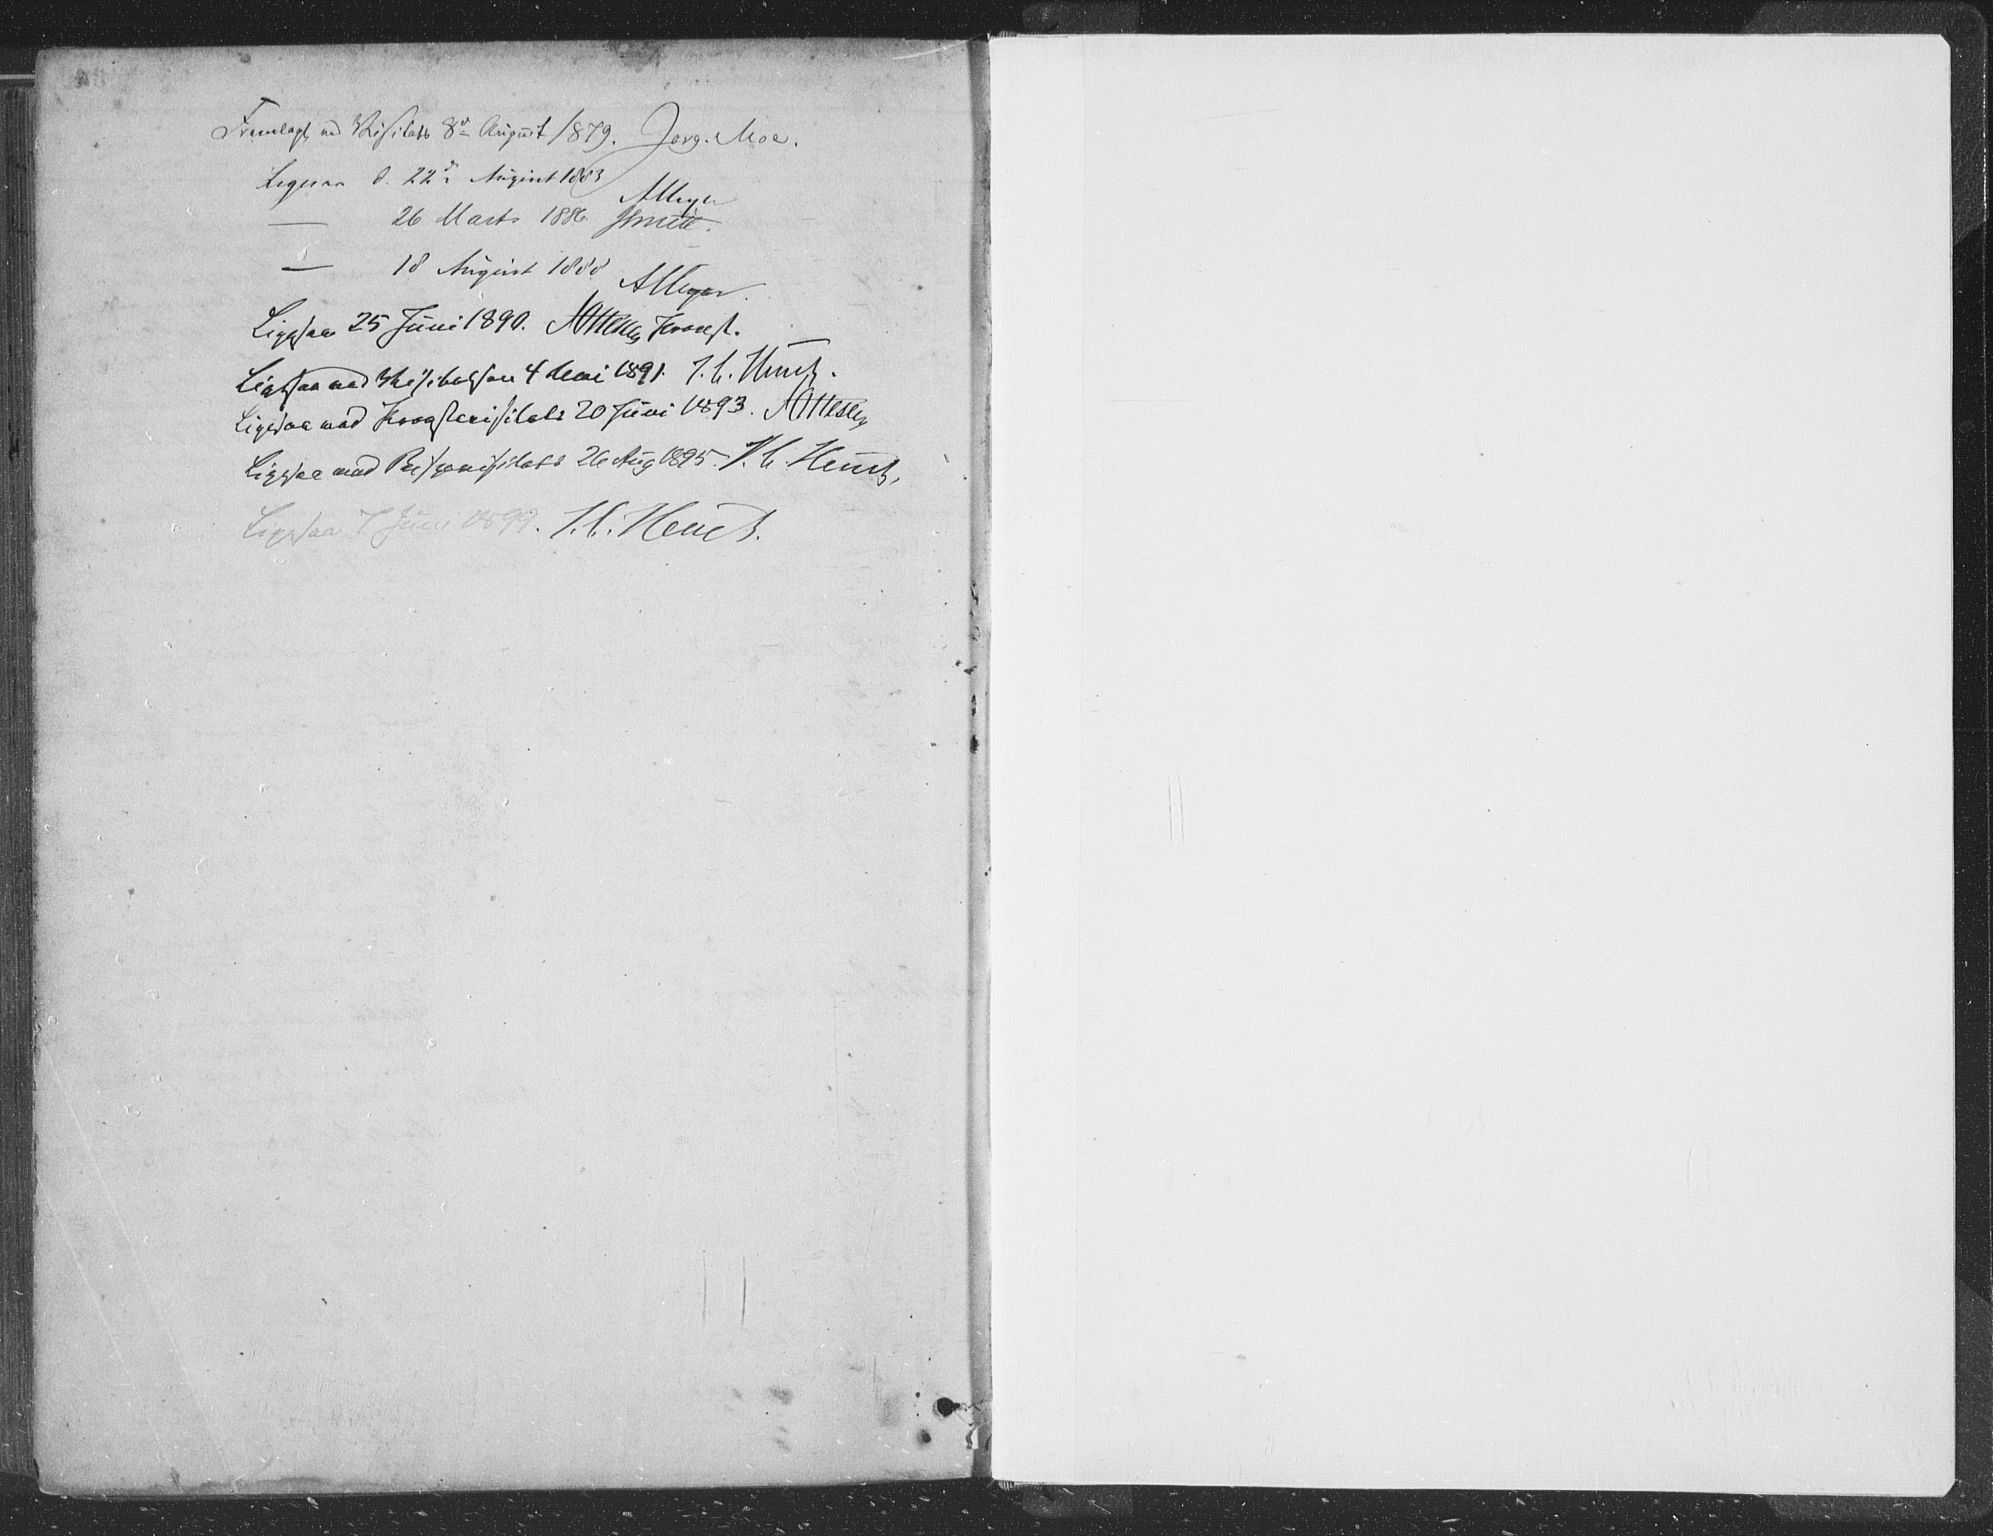 Fremlagt ved Visitats 8de August 1879. Jørg. Moe.
Ligesaa d. 22de August 1883 AMeyer
— 26 Marts 1886
— 18 August 1888 AMeyer.
Ligesaa 25 Juni 1890. Provst.
Ligesaa ved Visitatsen 4 Mai 1891. J. C. Heuch.
Ligesaa ved Provstevisitats 20 Juni 1893.
Ligesaa ved Bispevisitats 26 Aug 1895. J. C. Heuch.
Ligesaa 7 Juni 1899. J. C. Heuch.